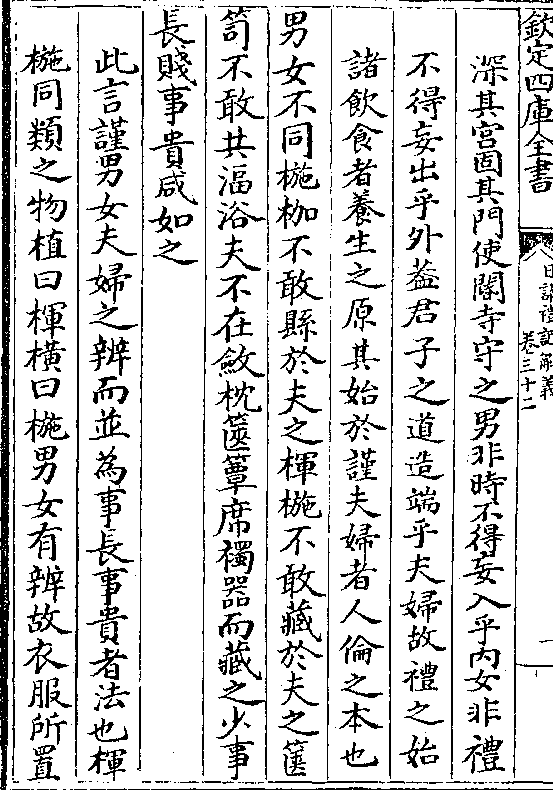 欽定四庫全書
日講禮記解義
卷三十二
深其宮固其門使閽寺守之男非時不得妄入乎內女非禮
不得妄出乎外葢君子之道造端乎夫婦故禮之始
諸飲食者養生之原其始於謹夫婦者人倫之本也
男女不同椸枷不敢縣於夫之楎椸不敢藏於夫之篋
笥不敢共湢浴夫不在斂枕篋簟席襡器而藏之少事
長賤事貴咸如之
此言謹男女夫婦之辨而並為事長事貴者法也楎
椸同類之物植曰楎橫曰椸男女有辨故衣服所置